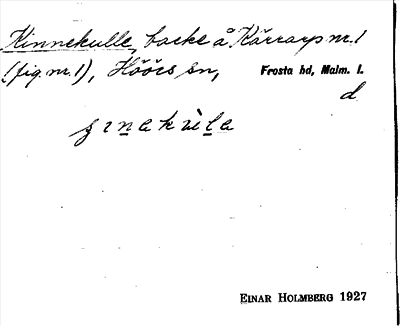 Kinnekulle, backe å Kärrarp nr. 1
(fig. nr. 1), Höörs sn, Frosta hd, Malm. l.
d
ʃınakùla
EINAR HOLMBERG 1927